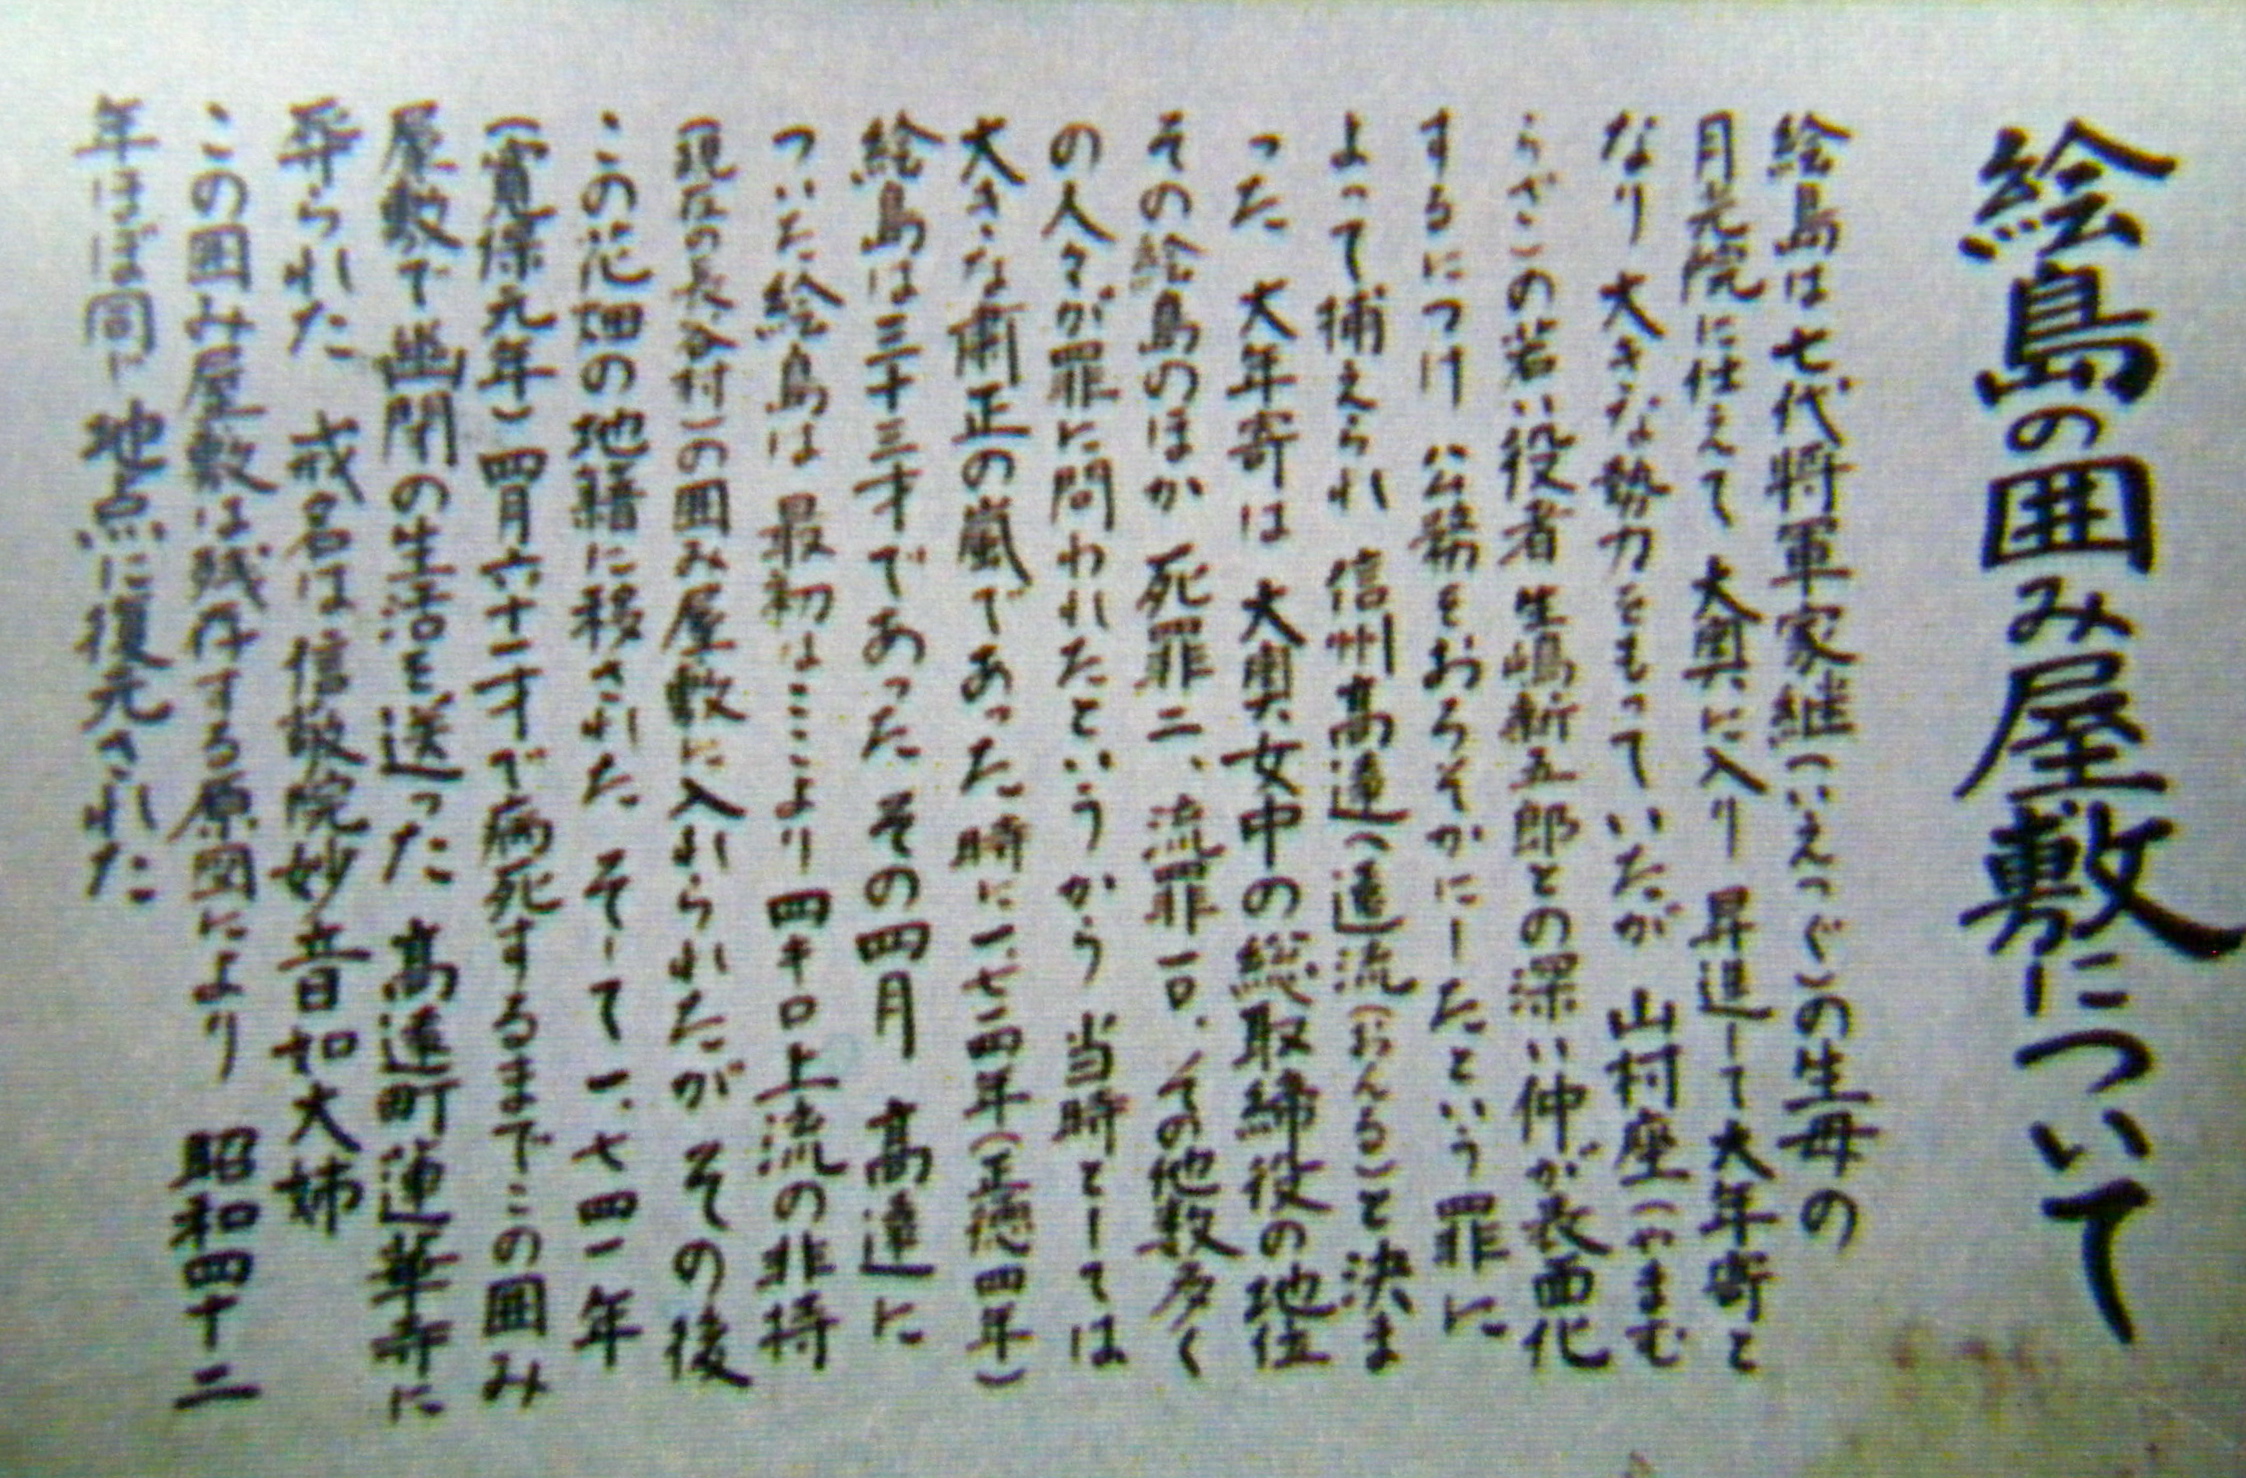 絵島の囲み屋敷について
絵島は七代将軍家継(いえつぐ)の生母の
月光院に仕えて 大奥に入り 昇進して大年寄と
なり 大きな勢力をもっていたが 山村座(やまむ
らざ)の若い役者 生嶋新五郎との深い仲が表面化
するにつけ 公務をおろそかにしたという罪に
よって捕えられ 信州高遠へ遠流(おんる)と決ま
った 大年寄は 大奥女中の総取締役の地位
その絵島のほか 死罪二、流罪一〇、その他数多く
の人々が罪に問われたというから 当時としては
大きな粛正の嵐であった 時に一、七一四年(正徳四年)
絵島は三十三才であった その四月 高遠に
ついた絵島は 最初はここより四キロ上流の非持
(現在の長谷村)の囲み屋敷に入れられたが その後
この花畑の地籍に移された そして一、七四一年
(寛保元年)四月六十一才で病死するまでこの囲み
屋敷で幽閉の生活を送った 高遠町蓮華寺に
葬られた 戒名は信敬院妙音如大姉
この囲み屋敷は残存する原図により 昭和四十二
年ほぼ同じ地点に復元された